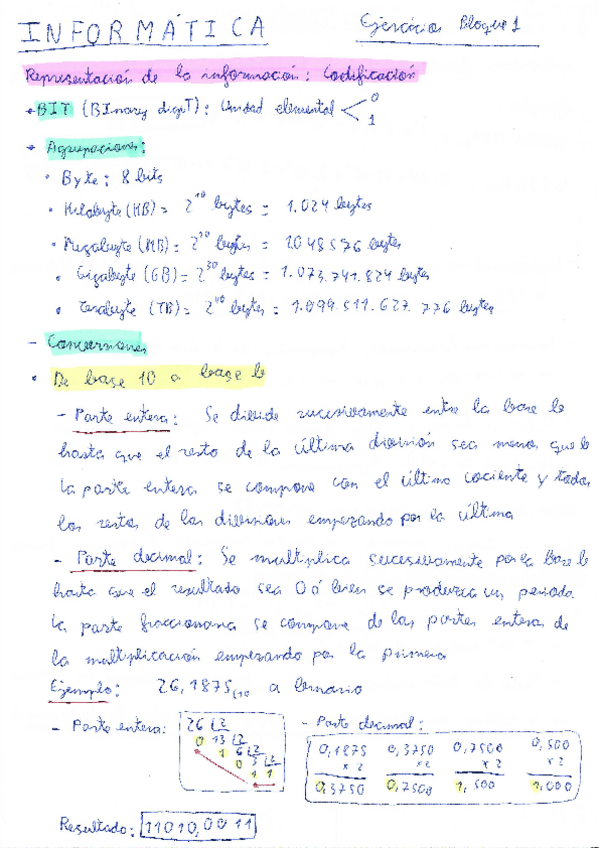 INFORMÁTICA Ejercicios Bloque 1
Representación de la información: Codificación
BIT (BInary digiT): Unidad elemental 0
1
Agrupaciones:
Byte: 8 bits
Kilobyte (KB) = 2^10 bytes = 1.024 bytes
Megabyte (MB) = 2^20 bytes = 1048576 bytes
Gigabyte (GB) = 2^30 bytes = 1.073.741.824 bytes
Terabyte (TB) = 2^40 bytes = 1.099.511.627.776 bytes
- Conversiones
De base 10 a base b
- Parte entera: Se divide sucesivamente entre la base b
hasta que el resto de la última división sea menor que b
La parte entera se compone con el último cociente y todos
los restos de las divisiones empezando por la última
- Parte decimal: Se multiplica sucesivamente por la base b
hasta que el resultado sea 0 ó bien se produzca un periodo.
La parte fraccionaria se compone de las partes enteras de
la multiplicación empezando por la primera
Ejemplo: 26,1875(10 a binario
- Parte entera: - Parte decimal:
26 2
0 13 2
1 6 2
0 3 2
1 1
0,1875 0,3750 0,7500 0,500
x2 x2 x2 x2
0,3750 0,7500 1,500 1,000
Resultado: 11010,0011